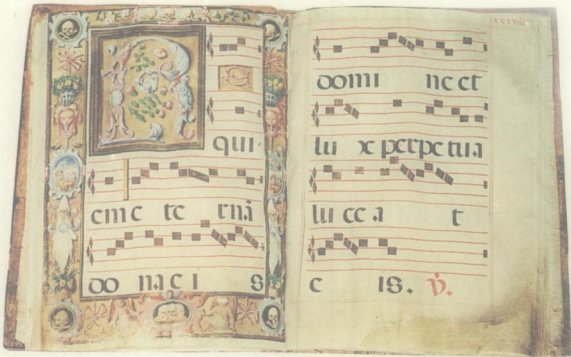 R
qui
eme te rnā
do na e i s
domi ne et
lu x perpetua
lu ce a t
e is. ℣.